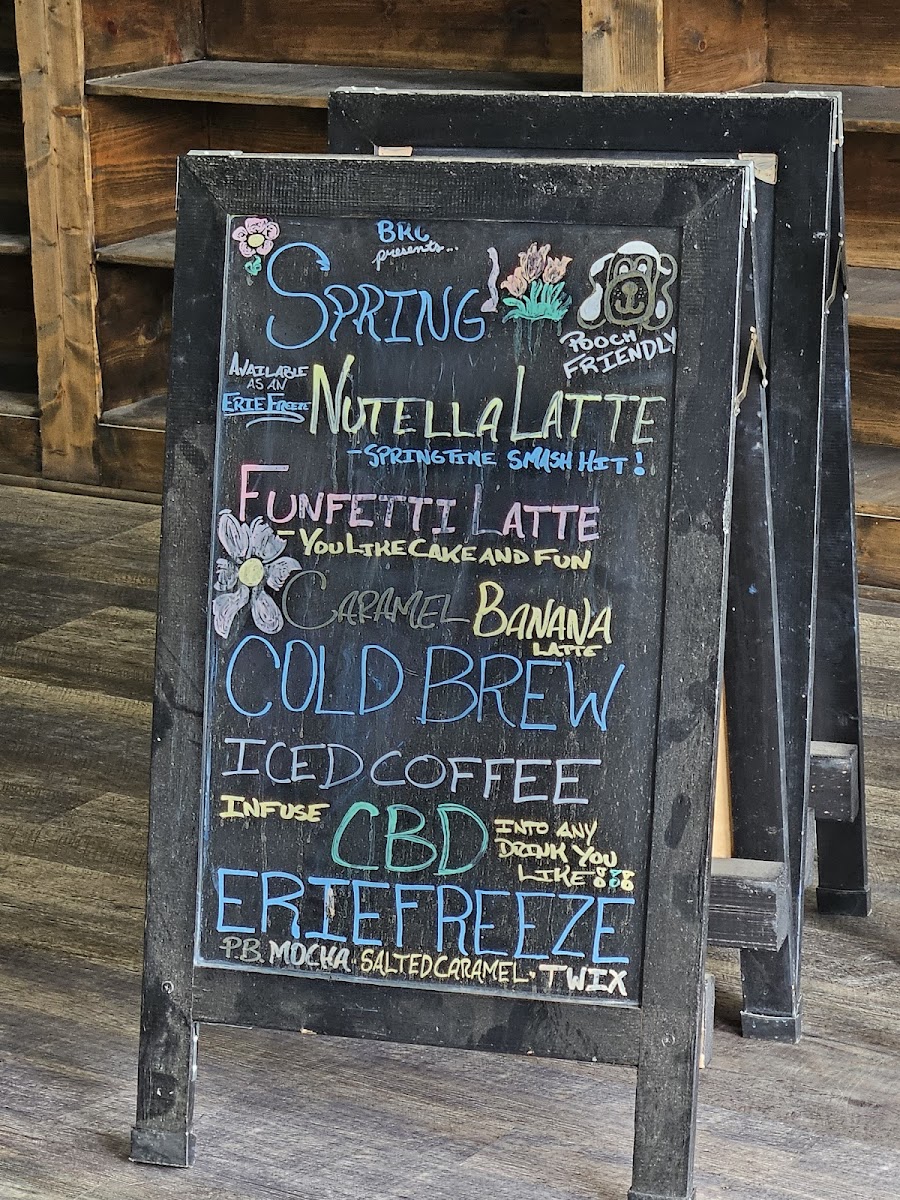 BRC
presents...
SPRING!
POOCH
FRIENDLY
AVAILABLE
AS AN
ERIEFREEZE
NUTELLA LATTE
-SPRINGTIME SMASH HIT!
FUNFETTI LATTE
-YOU LIKE CAKE AND FUN
CARAMEL BANANA
LATTE
COLD BREW
ICED COFFEE
INFUSE CBD INTO ANY
DRINK YOU
LIKE
ERIEFREEZE
P.B. MOCHA · SALTED CARAMEL · TWIX